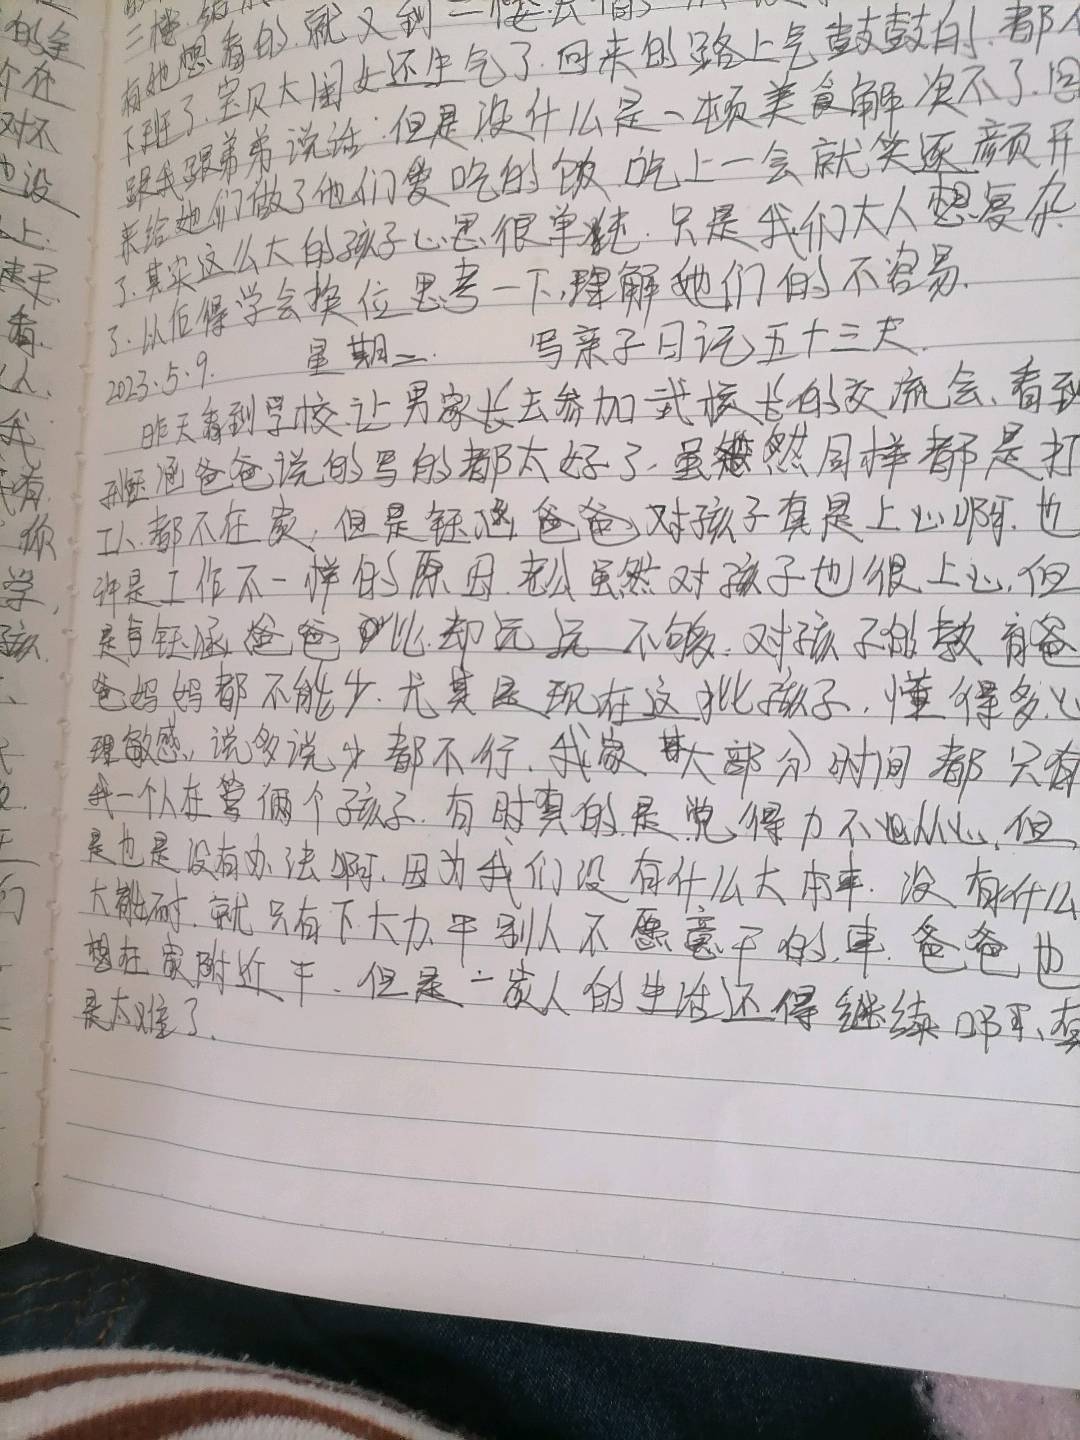 三楼
有她想看的.就又到二楼去借
下班了.宝贝大闺女还生气了.回来的路上气鼓鼓的.都不
跟我跟弟弟说话.但是没什么是一顿美食解决不了.回
来给她们做了他们爱吃的饭.吃上一会就笑逐颜开
了.其实这么大的孩子心思很单纯.只是我们大人想复杂
了.以后得学会换位思考一下.理解她们的不容易.
2023.5.9. 星期二. 写亲子日记五十三天.
昨天看到学校让男家长去参加武校长的交流会、看到
钰涵爸爸说的写的都太好了.虽然同样都是打
工、都不在家，但是钰涵爸爸对孩子真是上心啊.也
许是工作不一样的原因.老公虽然对孩子也很上心.但
是与钰涵爸爸比却远远不够.对孩子的教育爸
爸妈妈都不能少.尤其是现在这批孩子.懂得多.心
理敏感、说多说少都不行.我家大部分时间都只有
我一个人在管俩个孩子.有时真的是觉得力不从心.但
是也是没有办法啊.因为我们没有什么大本事.没有什么
大能耐.就只有下大力.干别人不愿意干的.事.爸爸也
想在家附近干.但是一家人的生活还得继续啊、真
是太难了.
的
个在
对不
也没
上.
看.
人.
我
有
你
学，
孩